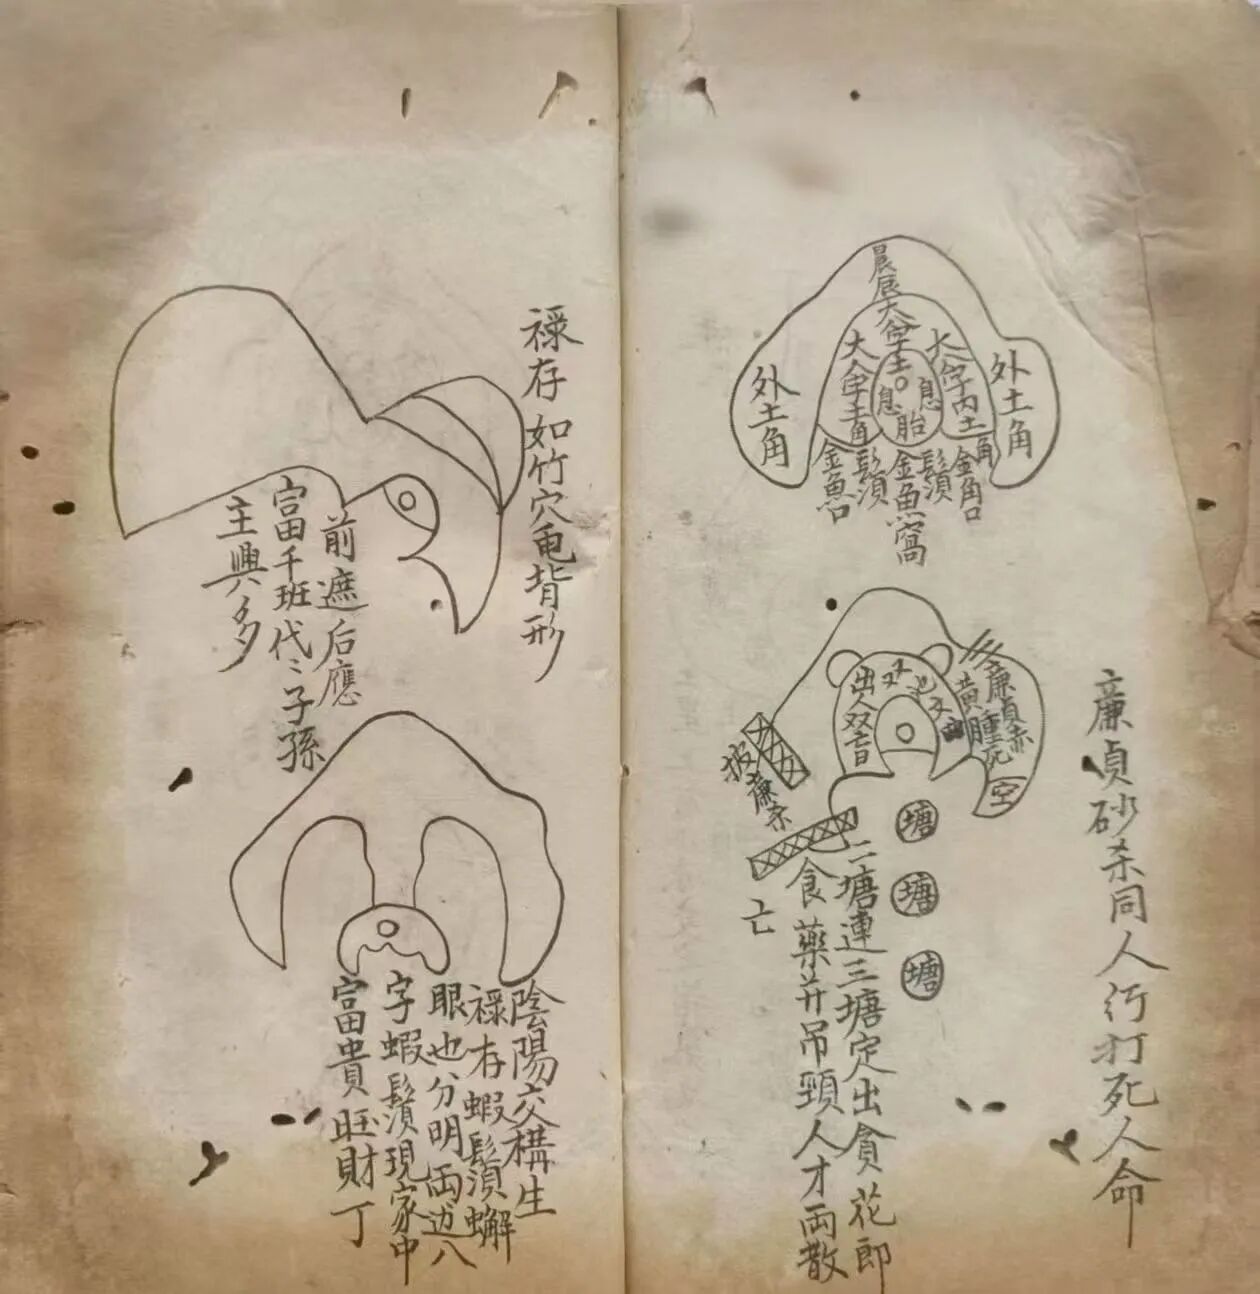 外土角
大八字内土角
大八字土角
外土角
息
胎
息
金角口
鬚須
金魚窩
鬚須
金魚口
廉貞砂杀同人行打死人命
廉貞赤
黄腫死
空
出人双盲
塘
塘
塘
二塘連三塘定出貪花郎
食藥并吊頸人才兩散
亡
禄存如竹穴黾背形
前遮后應
富千班代〻子孫
主興多
陰陽交構生
禄存蝦鬚須蠏
眼也分明両边八
字蝦鬚須現家中
富貴旺財丁